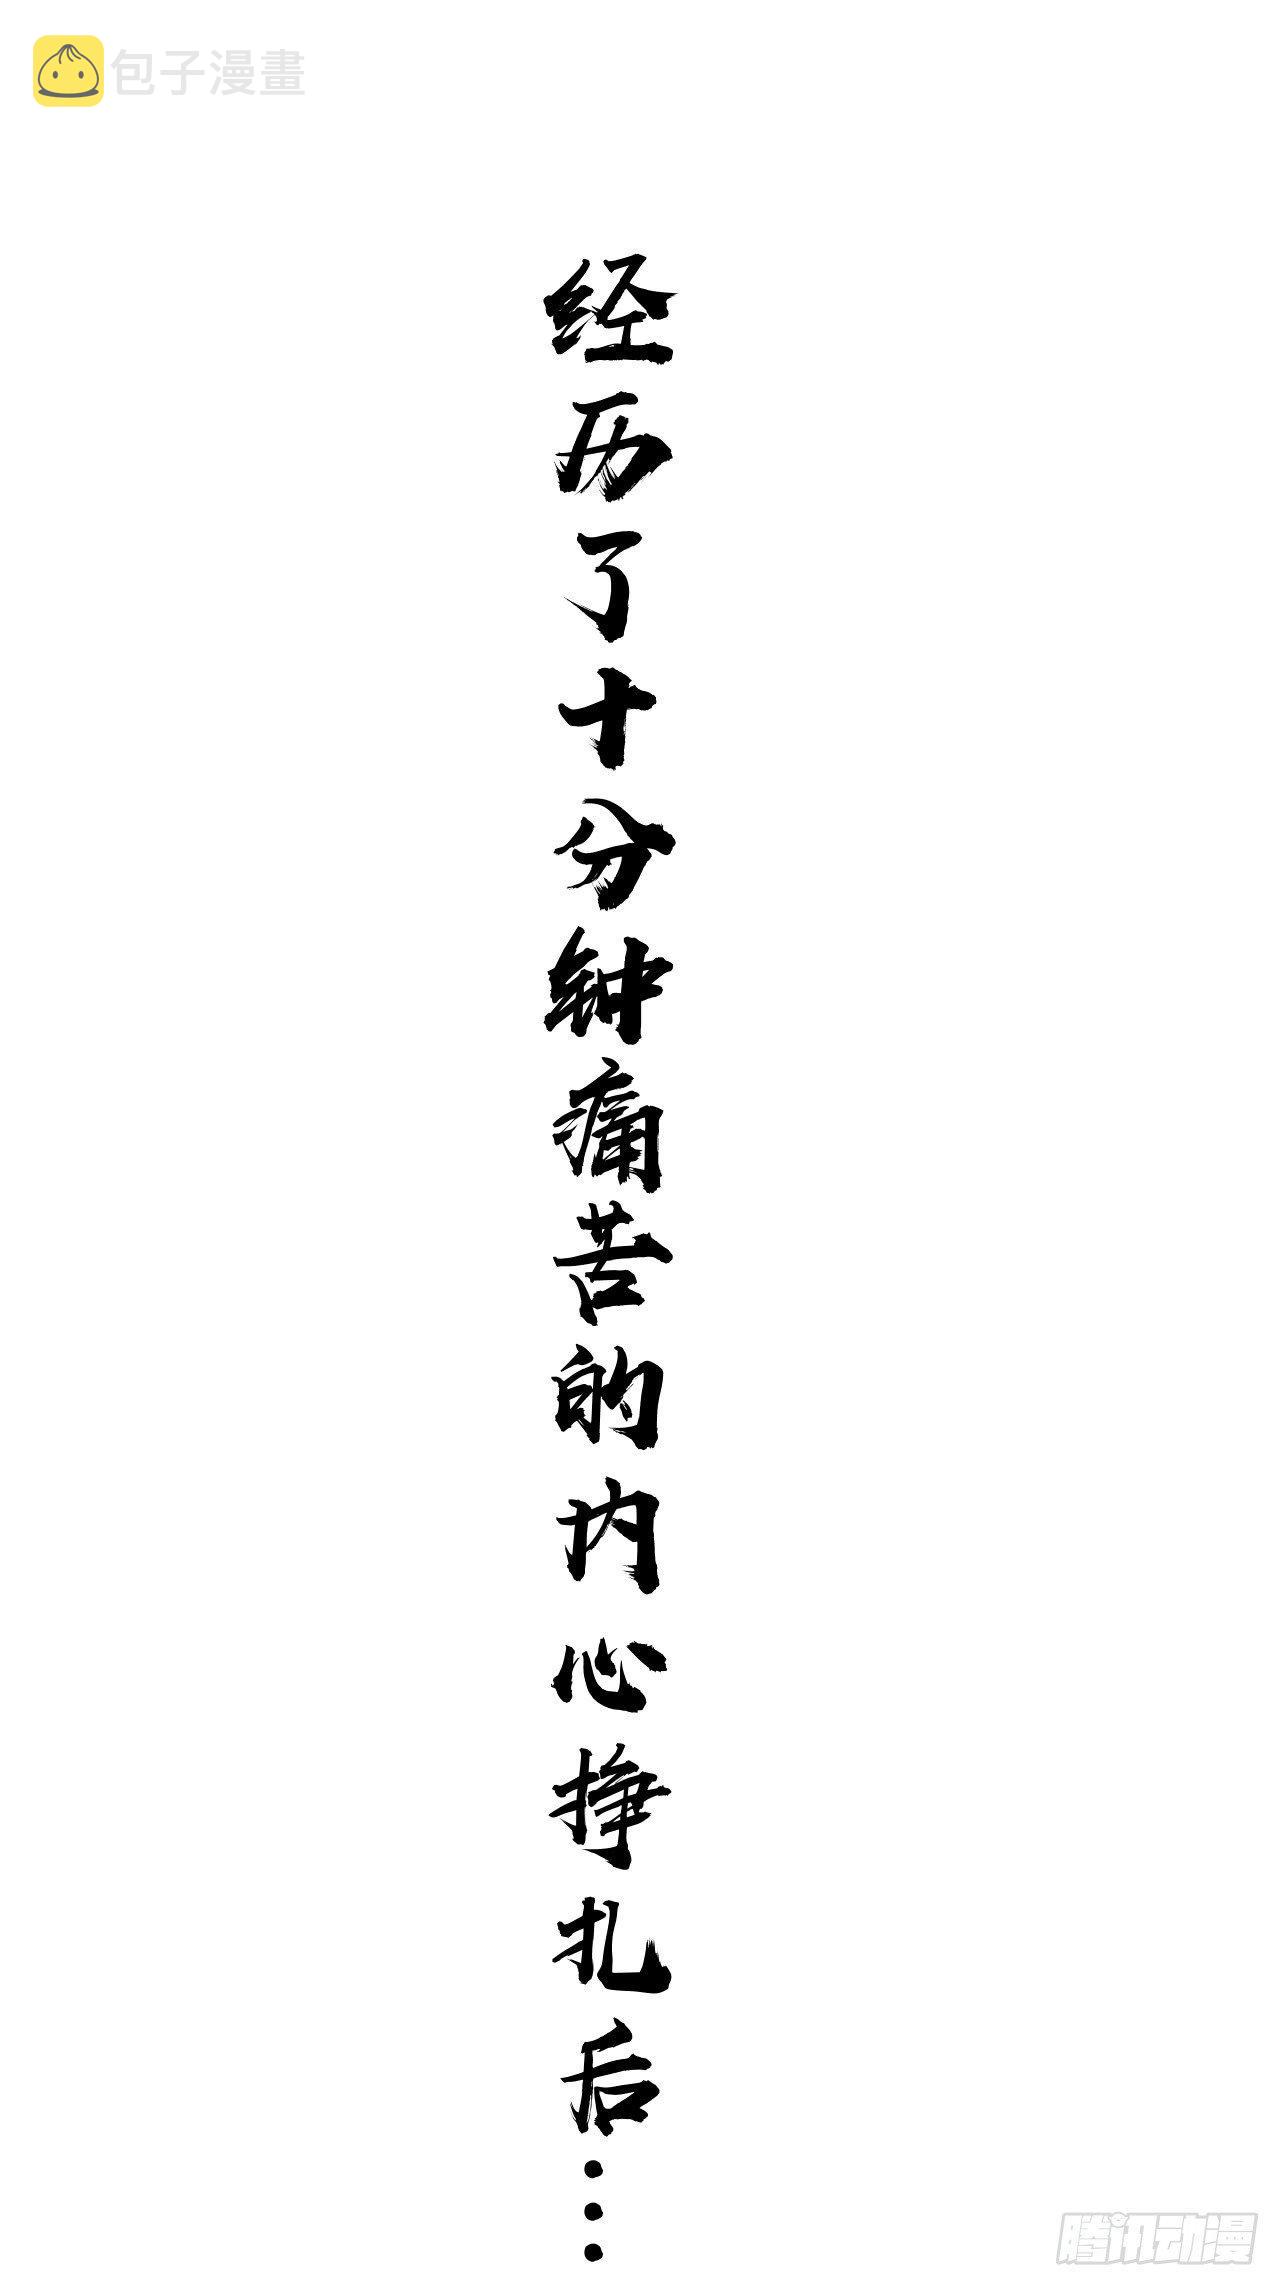 包子漫畫
经历了十分钟痛苦的内心挣扎后…
腾讯动漫